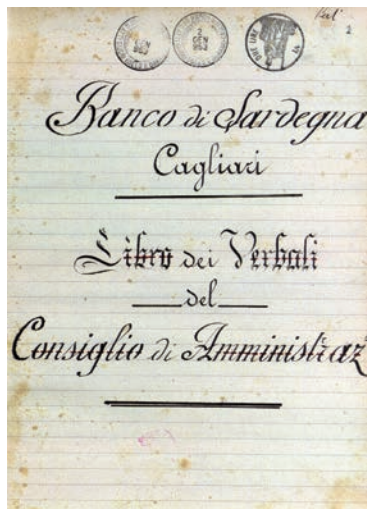 2
Banco di Sardegna
Cagliari
Libro dei Verbali
del
Consiglio di Amministraz